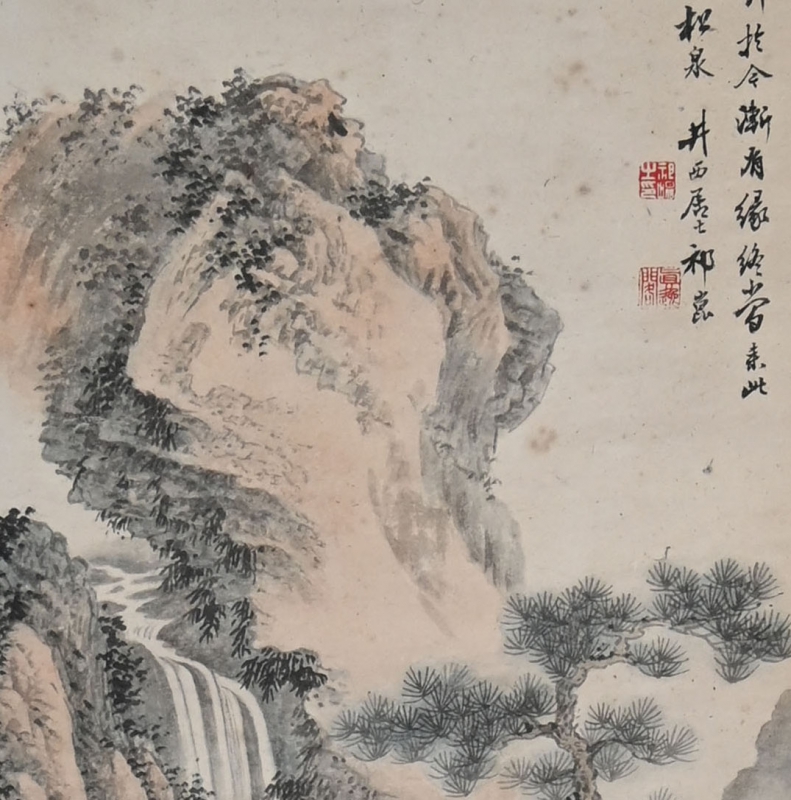 於今漸有緣終當來此
松泉 井西居士祁崑
祁崑之印